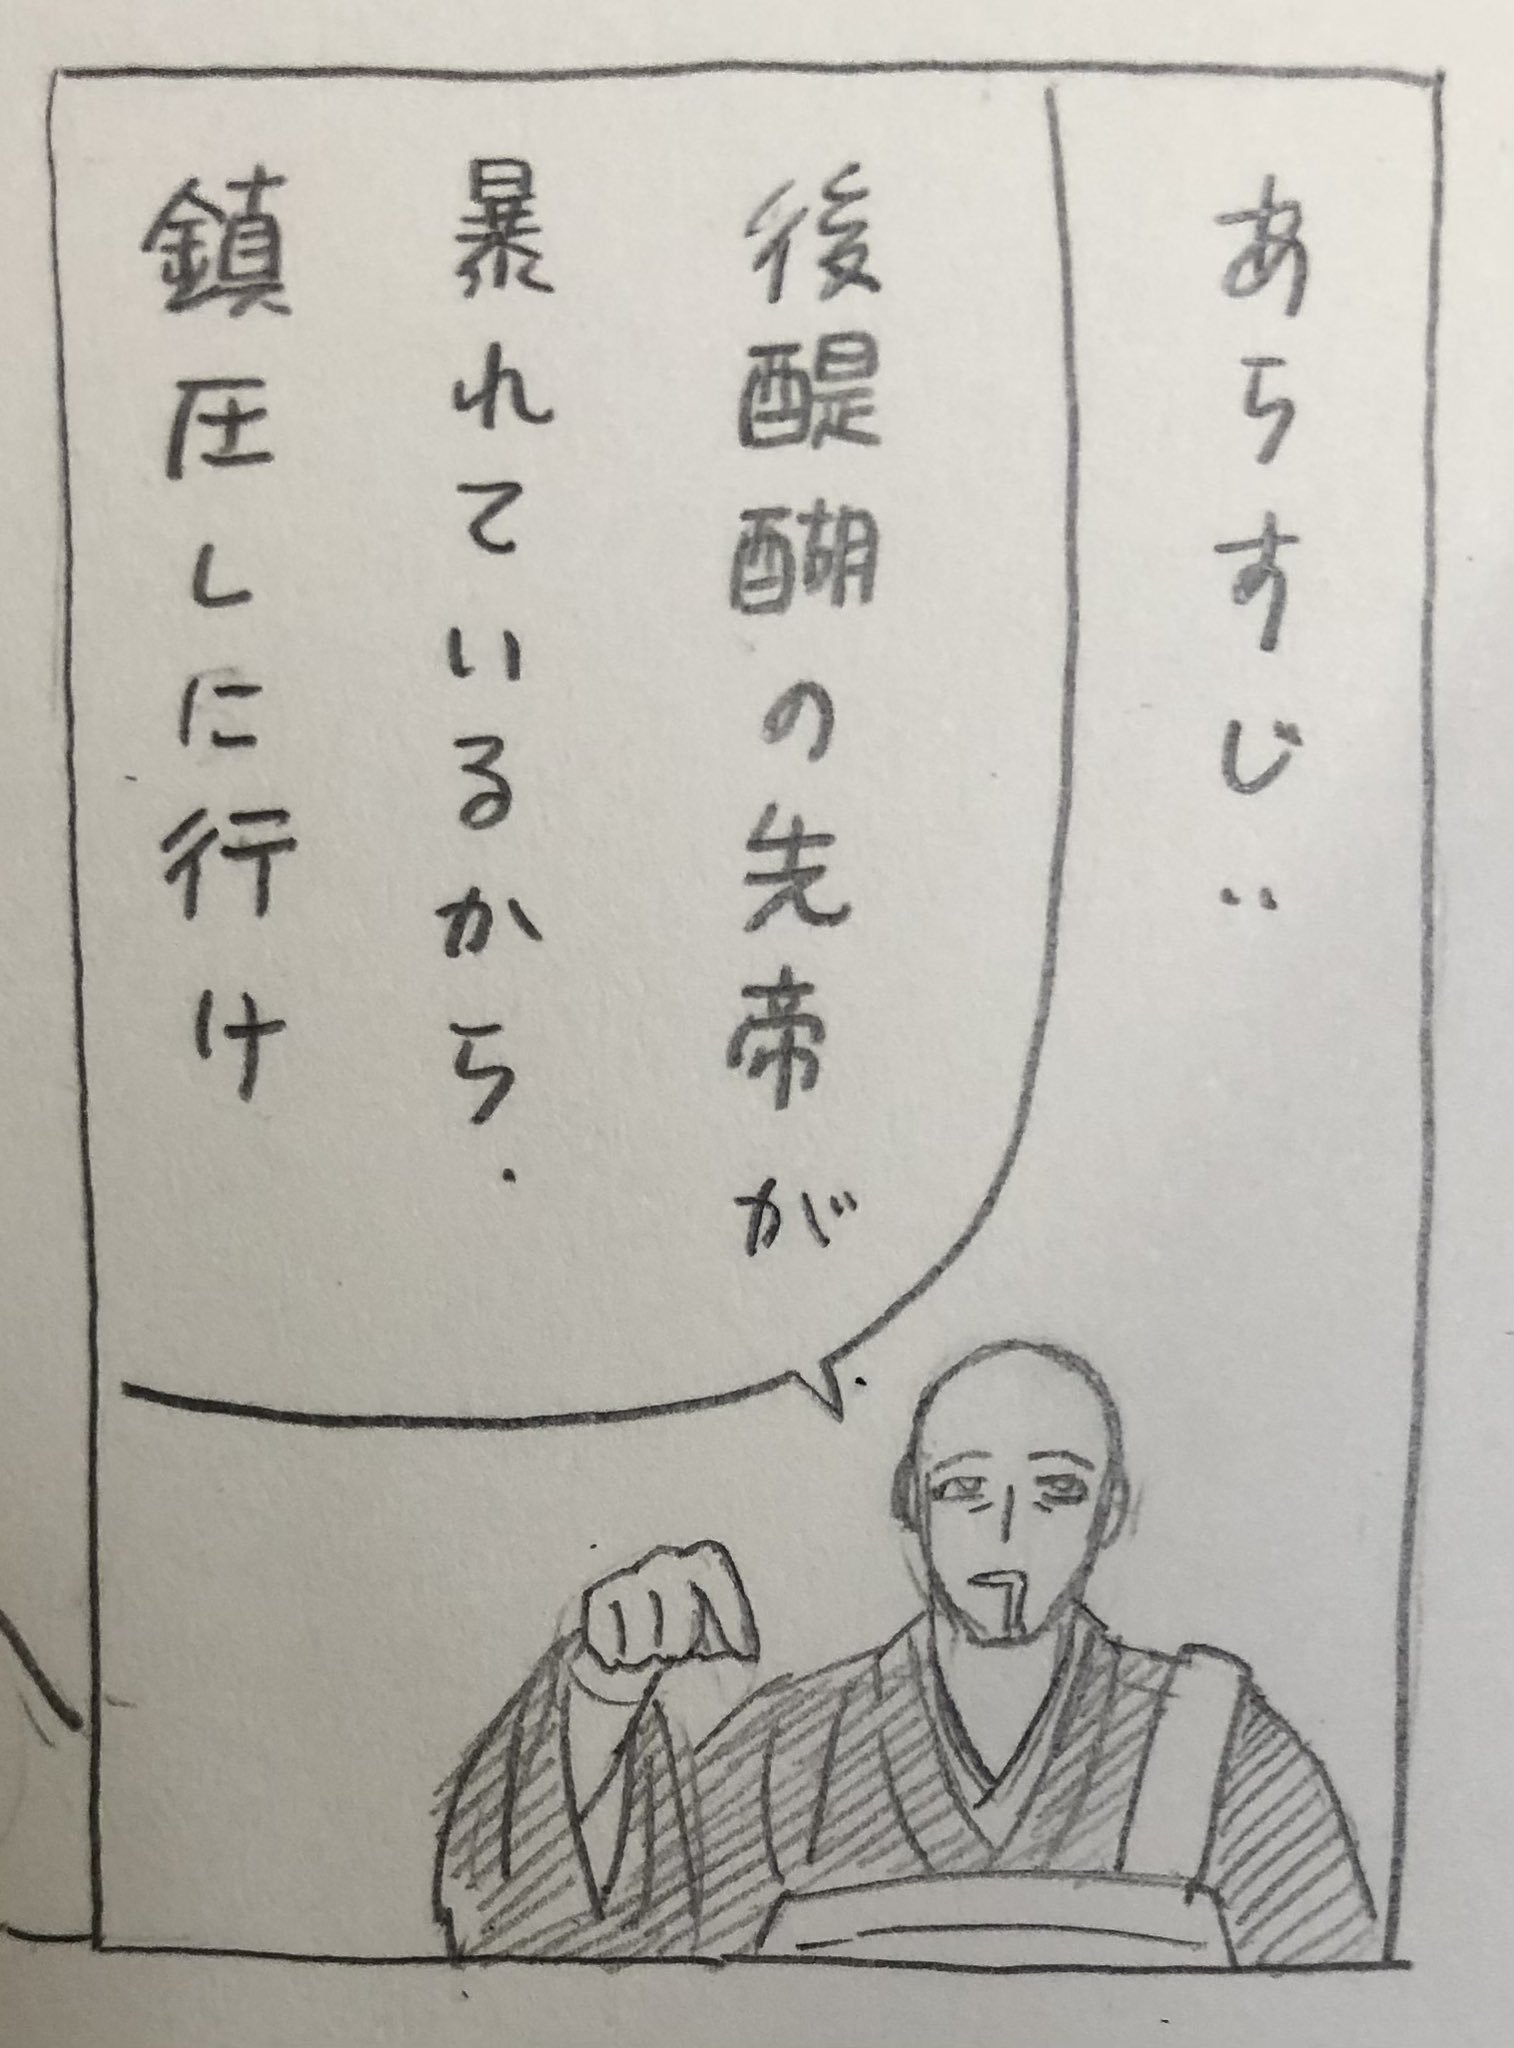 あらすじ：
後醍醐の先帝が
暴れているから
鎮圧しに行け